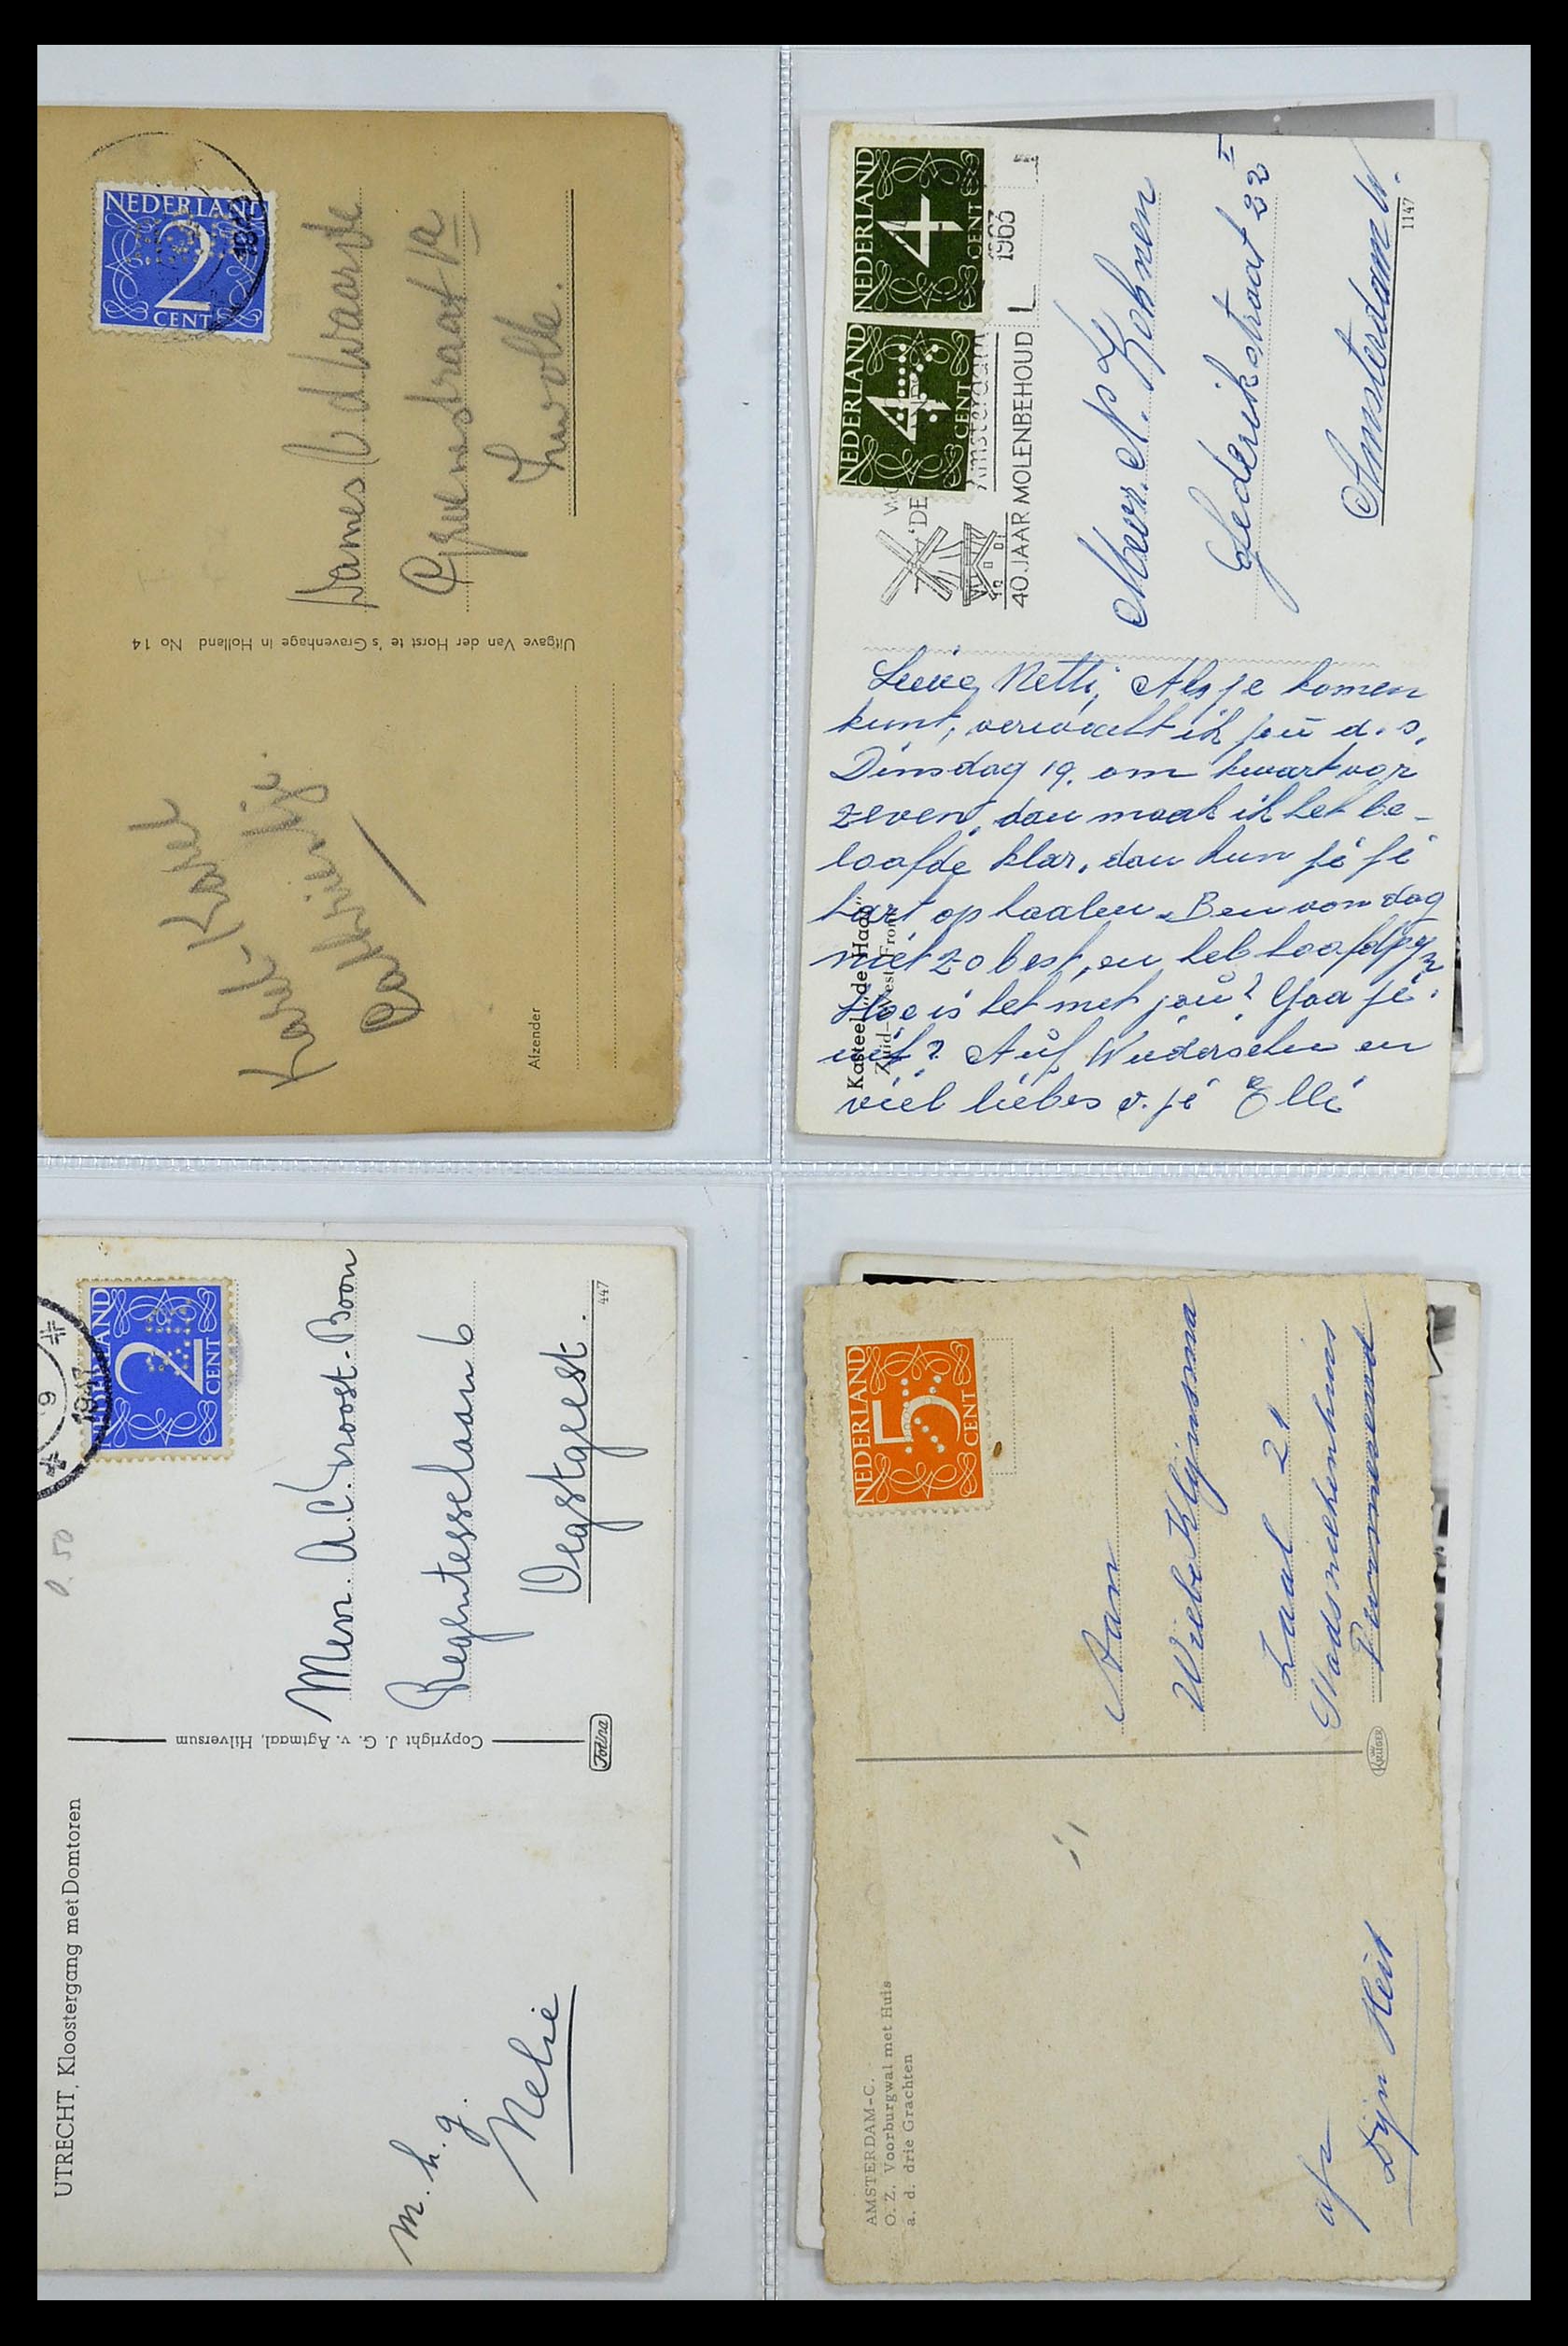 NEDERLAND
2
CENT
Dames
Zwolle.
Uitgave Van der Horst te 's Gravenhage in Holland No 14
Afzender
NEDERLAND
4
CENT
NEDERLAND
4
CENT
1963
Amsterdam
'DE
40 JAAR MOLENBEHOUD
Mevr. N. Kohnen
straat 22 I
Amsterdam W.
1147
Kasteel „de Haar"
Zuid-West Front
Lieve Netti, Als je komen
kunt, verwacht ik jou d.s.
Dinsdag 19. om kwart voor
zeven, dan maak ik het be-
loofde klar, dan kun je je
hart ophaalen. Ben van dag
niet zo best, en heb hoofdpyn
Hoe is het met jou? Gaa je
uit? Auf Wiedersehn en
viel liebes v. je Elli
NEDERLAND
2
CENT
1947
9
0.50
Mevr. A.C. Proost-Boon
Regentesselaan 6
Oegstgeest.
447
Copyright J. G. v. Agtmaal, Hilversum
UTRECHT, Kloostergang met Domtoren
m. h. g.
Nelie
NEDERLAND
5
CENT
Aan
Wiebe Klijnsma
Zaal 21
Stadsziekenhuis
Purmerend
KRÜGER
AMSTERDAM-C.
O. Z. Voorburgwal met Huis
a. d. drie Grachten
afz
Dijn Heit